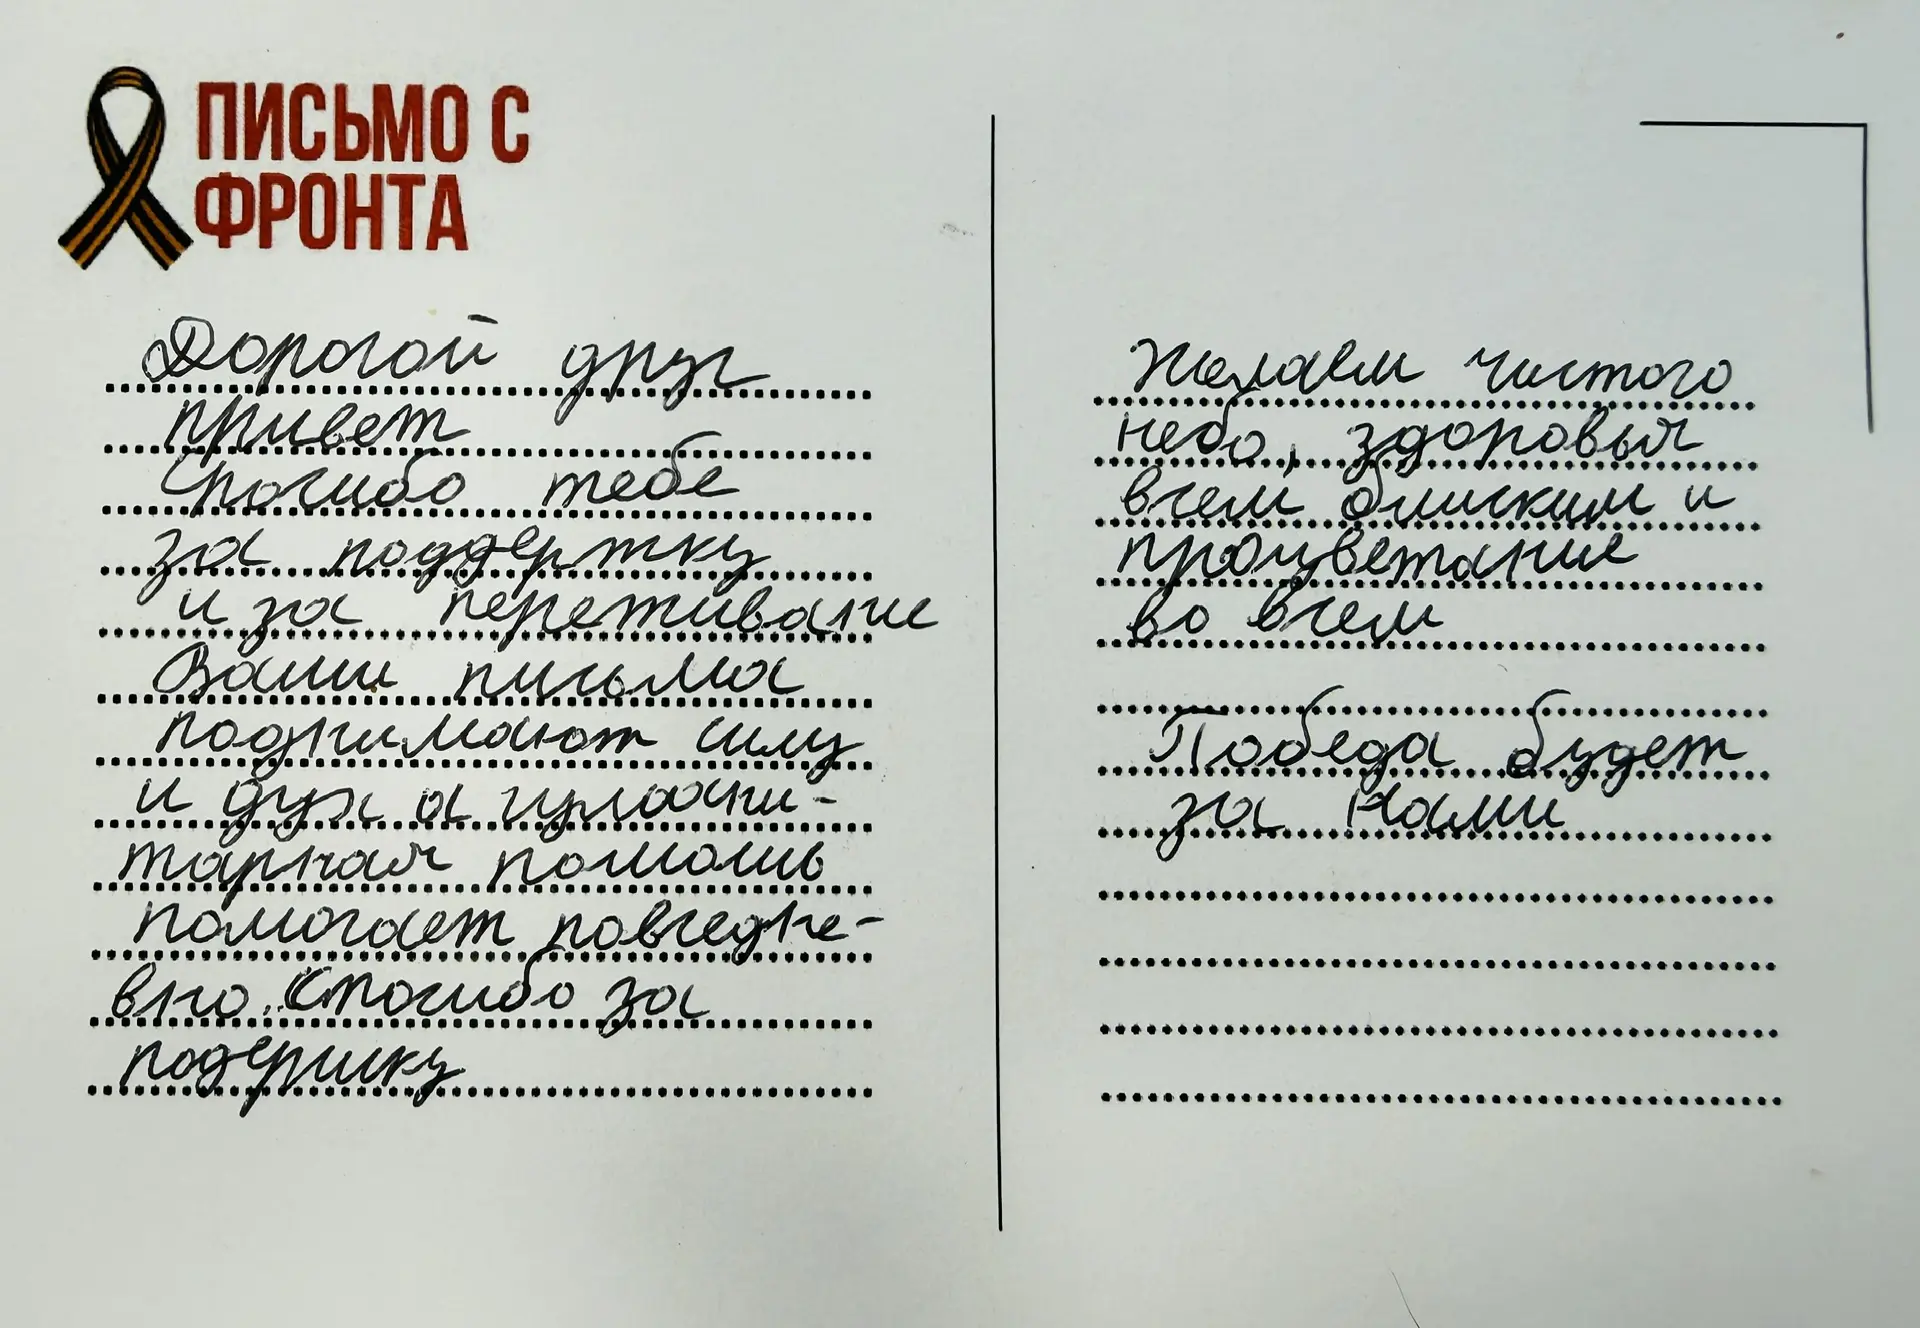 ПИСЬМО С
ФРОНТА
Дорогой друг
привет
Спасибо тебе
за поддержку
и за переживание
Ваши письма
поднимают силу
и дух а гумани-
тарная помошь
помогает повседне-
вно. Спасибо за
Желаем чистого
неба, здоровья
всем близким и
процветание
во всем
Победа будет
за Нами